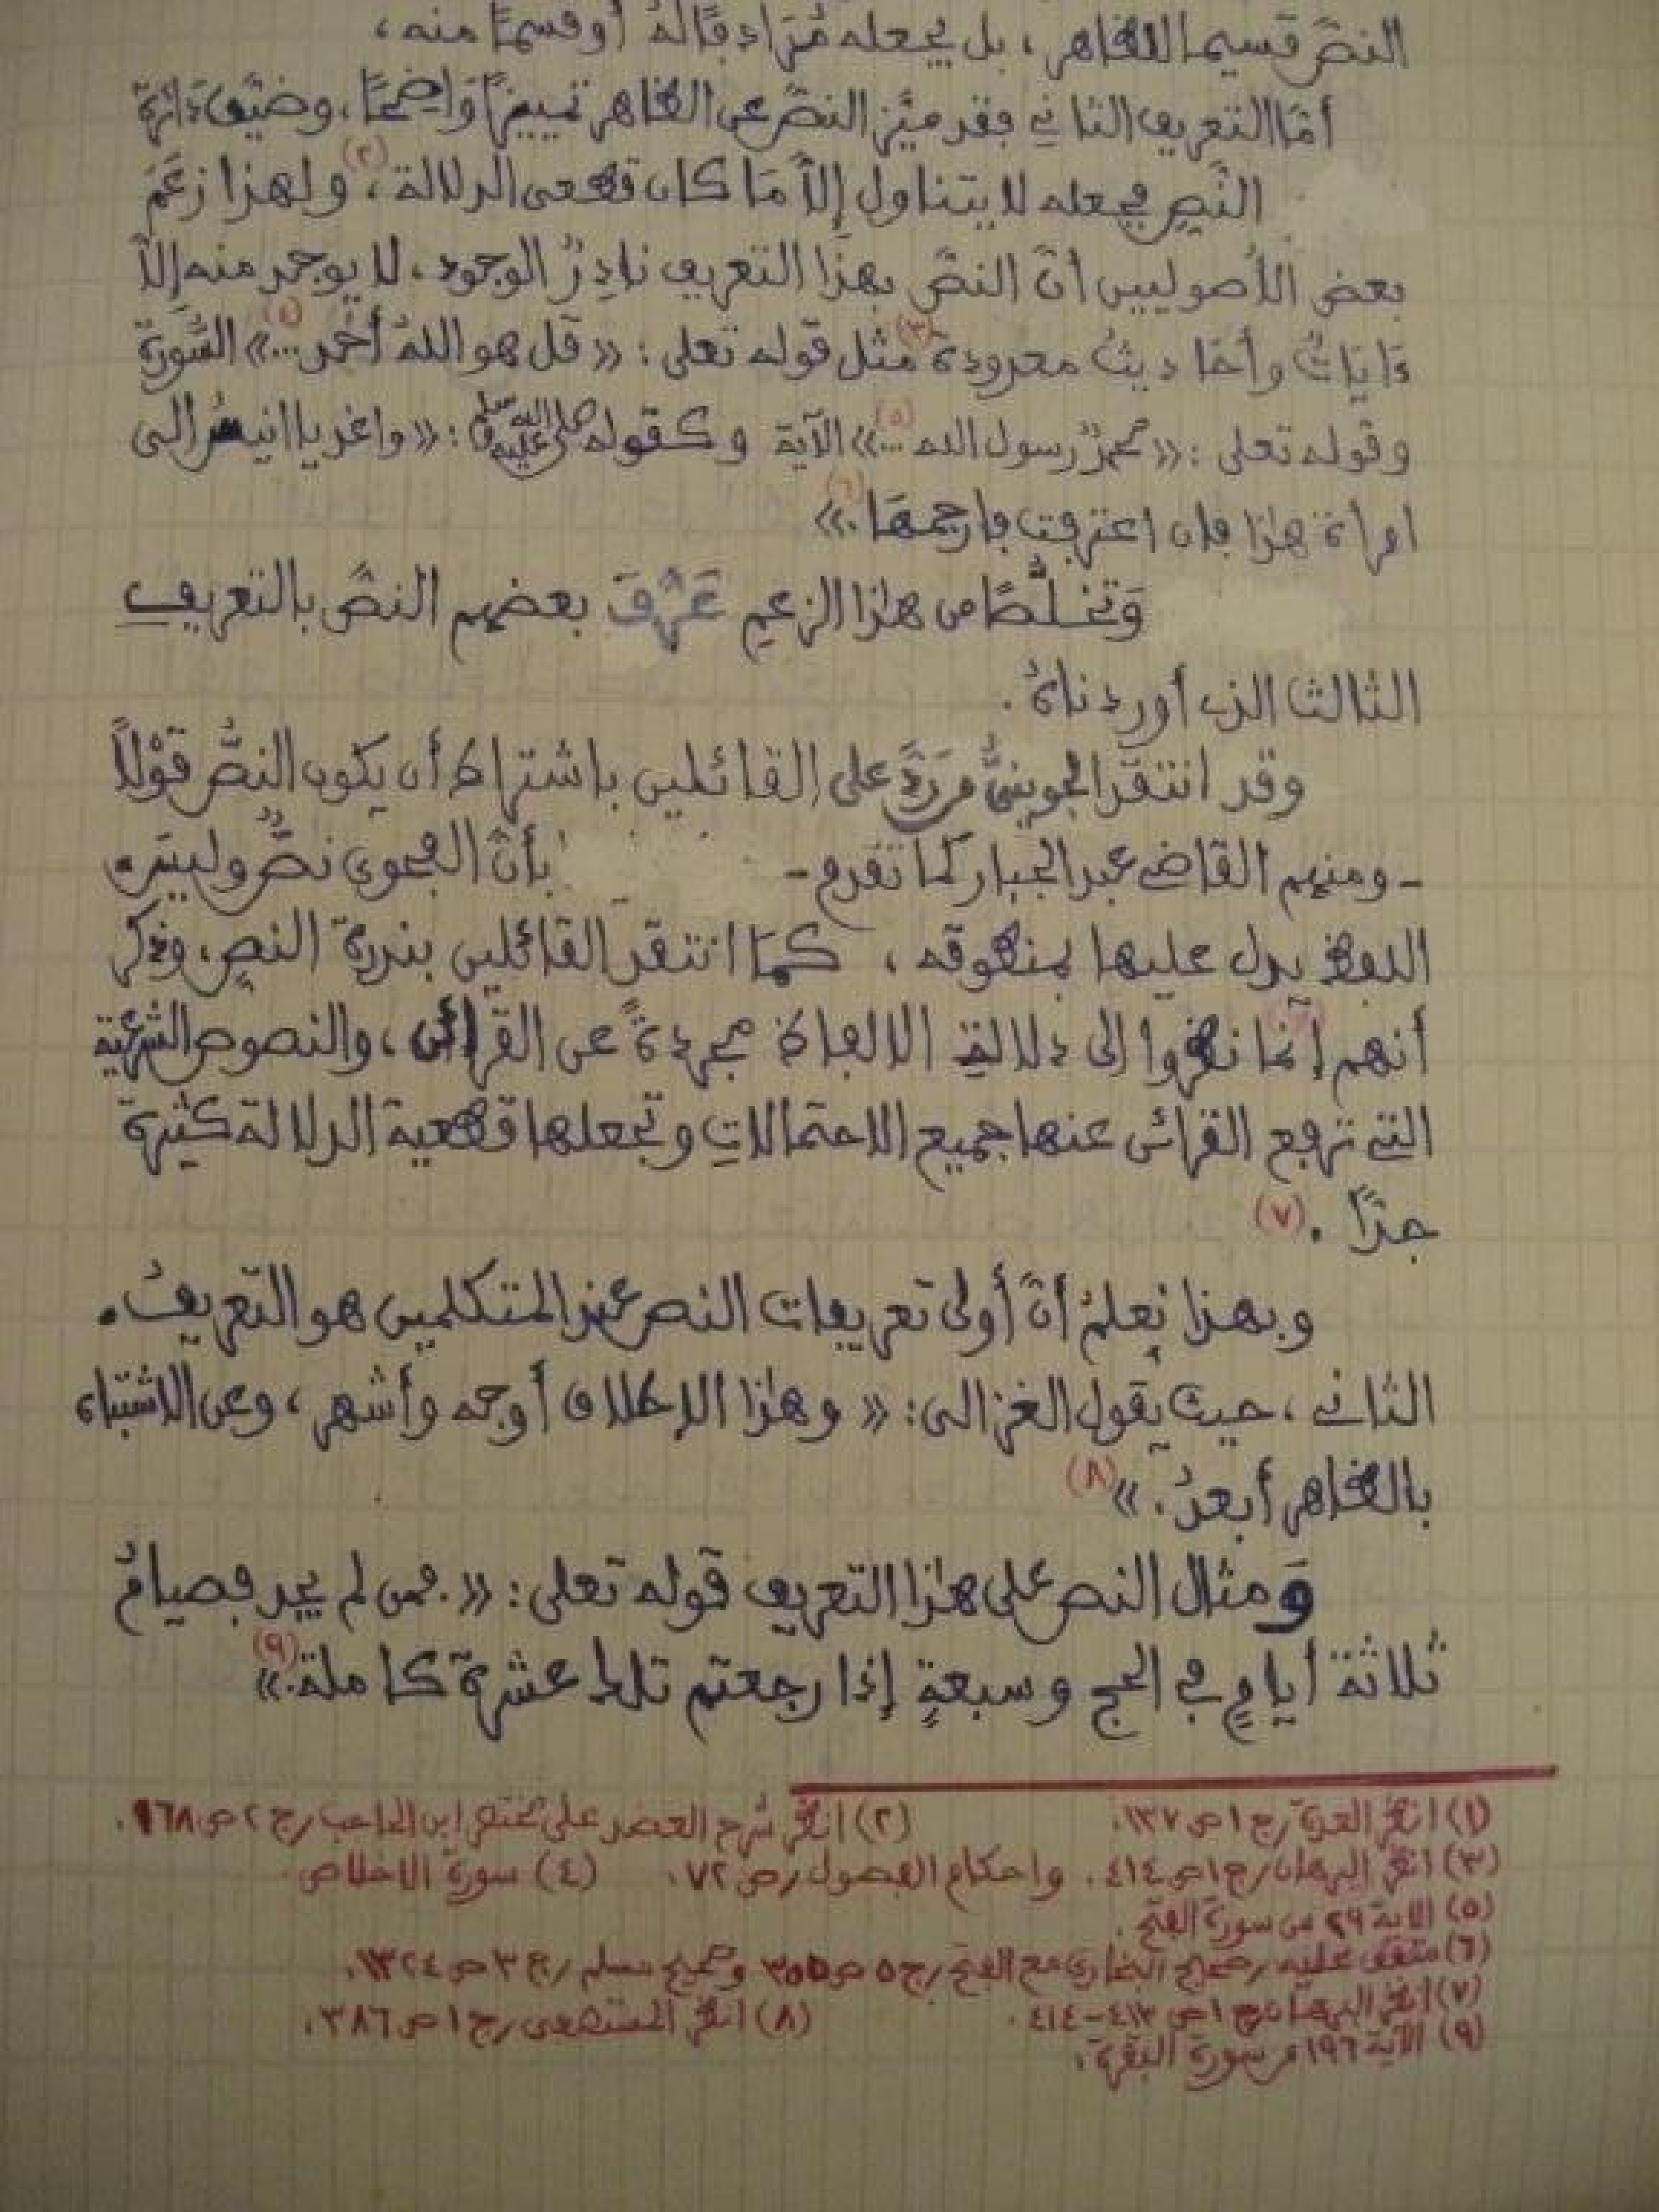 النصَّ قسيما للظاهر، بل يجعله مُرَادِفًا لهُ أو قسمًا منه،
أمَّا التعريف الثاني فقد ميَّز النصَّ عن الظاهر تمييزًا وَاضِحًا، وضيَّق دَائرة
النَّصِ فجعله لا يتناول إلاَّ مَا كان قطعى الدلالة (٢)، ولهذا زعَمَ
بعض الأصوليين أنَّ النصَّ بهذَا التعريف نادِرُ الوجود، لا يوجد منه إلاَّ
ءَايَاتٌ وأحَاديثُ معدودة (٣) مثل قوله تعلى: «قل هو اللهُ أحَد...» (٤) السُّورة
وقوله تعلى: «محمدٌ رسول الله...» (٥) الآية وكقوله صلى الله عليه وسلم: «واغد يا انيسُ إلى
امرأة هٰذا فإن اعترفت فارجمهَا.» (٦)
وَتخلُّصًا من هٰذا الزعمِ عَرَّفَ بعضهم النصَّ بالتعريفِ
الثالث الذى أوردناهُ.
وقد انتقدَ الجوينىُّ مَرَدَّ على القائلين باشتراط أن يكون النصُّ قوْلاً
-ومنهم القاضى عبد الجبار كما تقدم- بأنَّ الفحوى نصٌّ وليسَ
اللفظ يدل عليها بمنطوقه، كمَا انتقد القائلين بندرة النصِ، وذكر
أنهم إنما نظروا إلى دلالةِ الالفاظ مجردةً عن القرائن، والنصوص الشرعية
التى ترفع القرائن عنها جميع الاحتمالاتِ وتجعلها قطعية الدلالة كثيرة
جدًّا. (٧)
وبهذا نعلمُ أنَّ أولى تعريفات النص عند المتكلمين هو التعريفُ
الثانى، حيث يقول الغزالى: «وهٰذا الإطلاق أوجه وأشهر، وعن الاشتباه
بالظاهر أبعدُ.» (٨)
وَمثال النص على هٰذا التعريف قوله تعلى: «.فمن لم يجد فصيامُ
ثلاثة أيامٍ في الحج وسبعةٍ إذا رجعتم تلك عشرة كاملة.» (٩)
(١) انظر العدة / ج ١ ص ١٣٧. (٢) انظر شرح العضد على مختصر ابن الحاجب / ج ٢ ص ١٦٨.
(٣) انظر البرهان / ج ١ ص ٤١٤. واحكام الفصول / ص ٧٢. (٤) سورة الاخلاص
(٥) الآية ٢٩ من سورة الفتح.
(٦) متفق عليه / صحيح البخارى مع الفتح / ج ٥ ص ٣٥٥ وصحيح مسلم / ج ٣ ص ١٣٢٤.
(٧) انظر البرهان ج ١ ص ٤١٣-٤١٤. (٨) انظر المستصفى / ج ١ ص ٣٨٦.
(٩) الآية ١٩٦ من سورة البقرة.